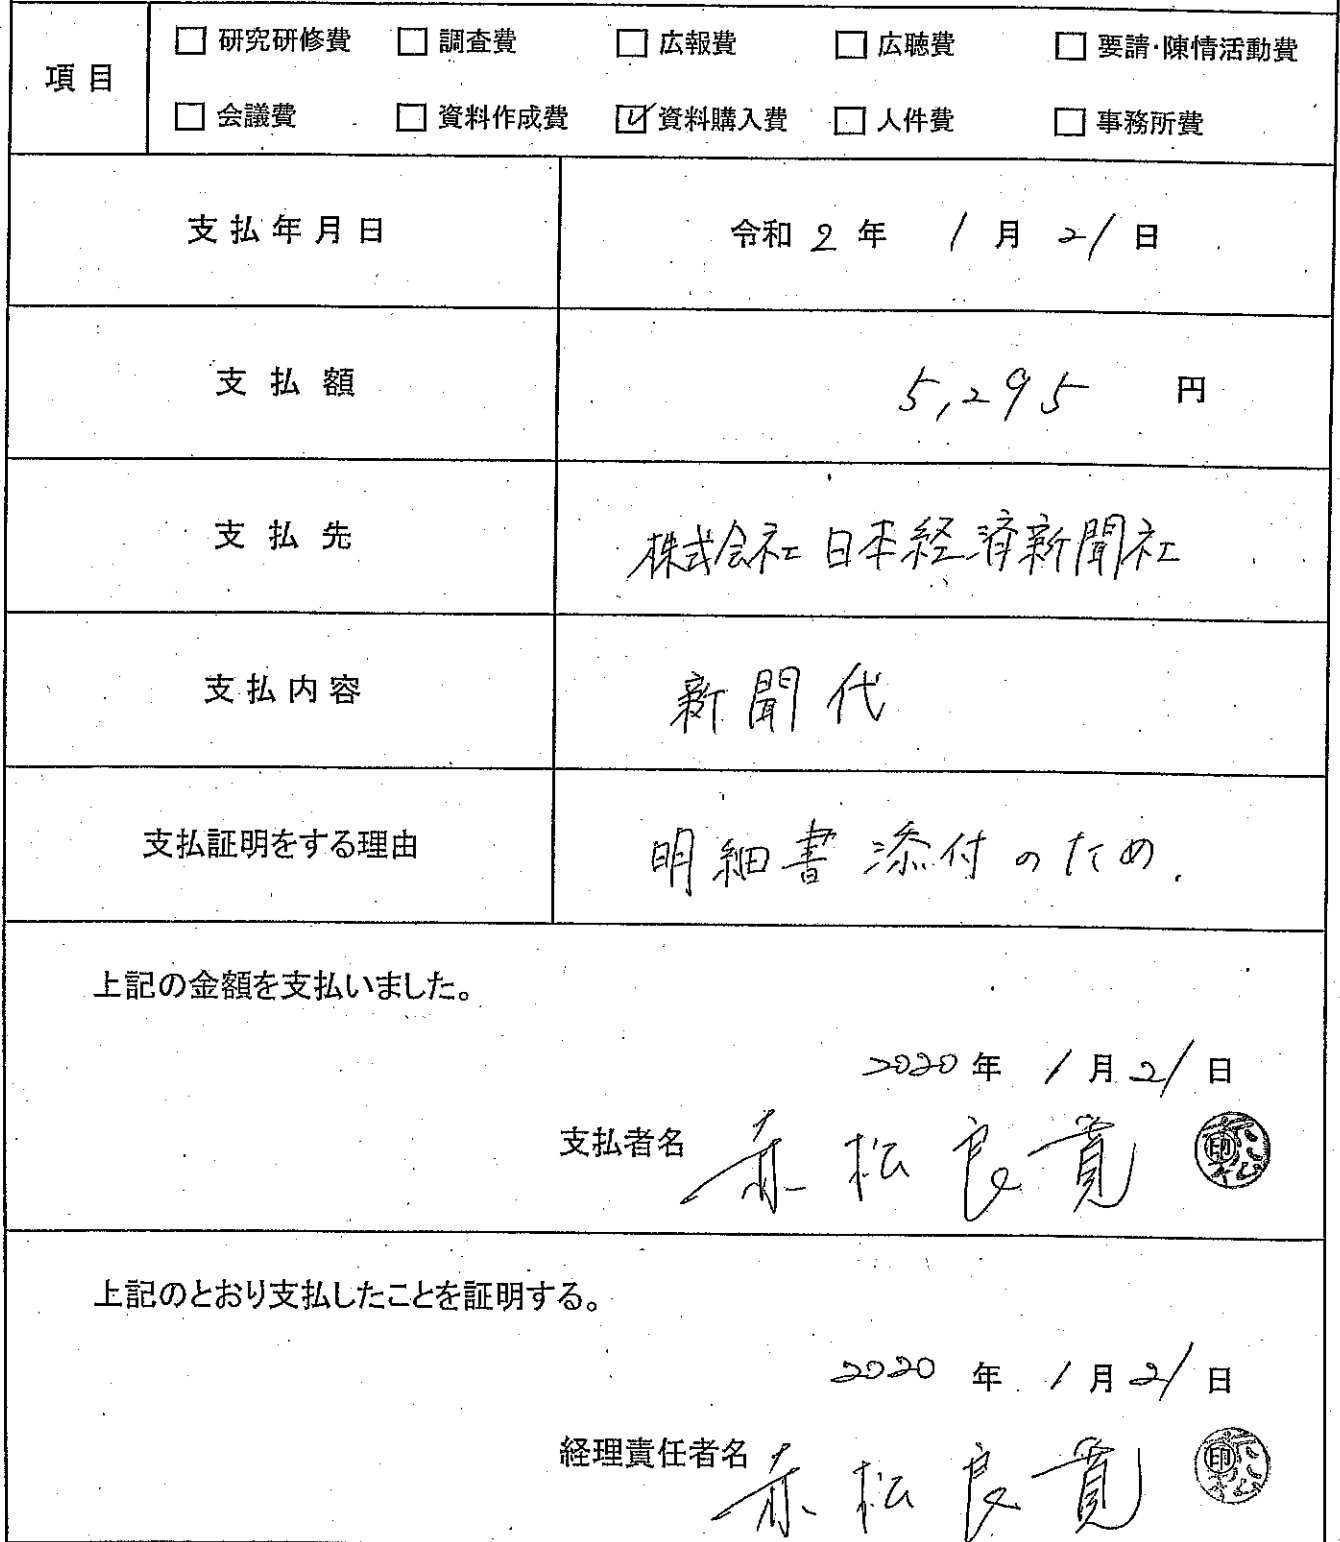 項目 □ 研究研修費 □ 調査費 □ 広報費 □ 広聴費 □ 要請・陳情活動費
□ 会議費 □ 資料作成費 ☑ 資料購入費 □ 人件費 □ 事務所費
支払年月日 令和 2 年 1 月 21 日
支払額 5,295 円
支払先 株式会社 日本経済新聞社
支払内容 新聞代
支払証明をする理由 明細書添付のため.
上記の金額を支払いました。
2020 年 1 月 21 日
支払者名 赤松良寛 印
上記のとおり支払したことを証明する。
2020 年 1 月 21 日
経理責任者名 赤松良寛 印